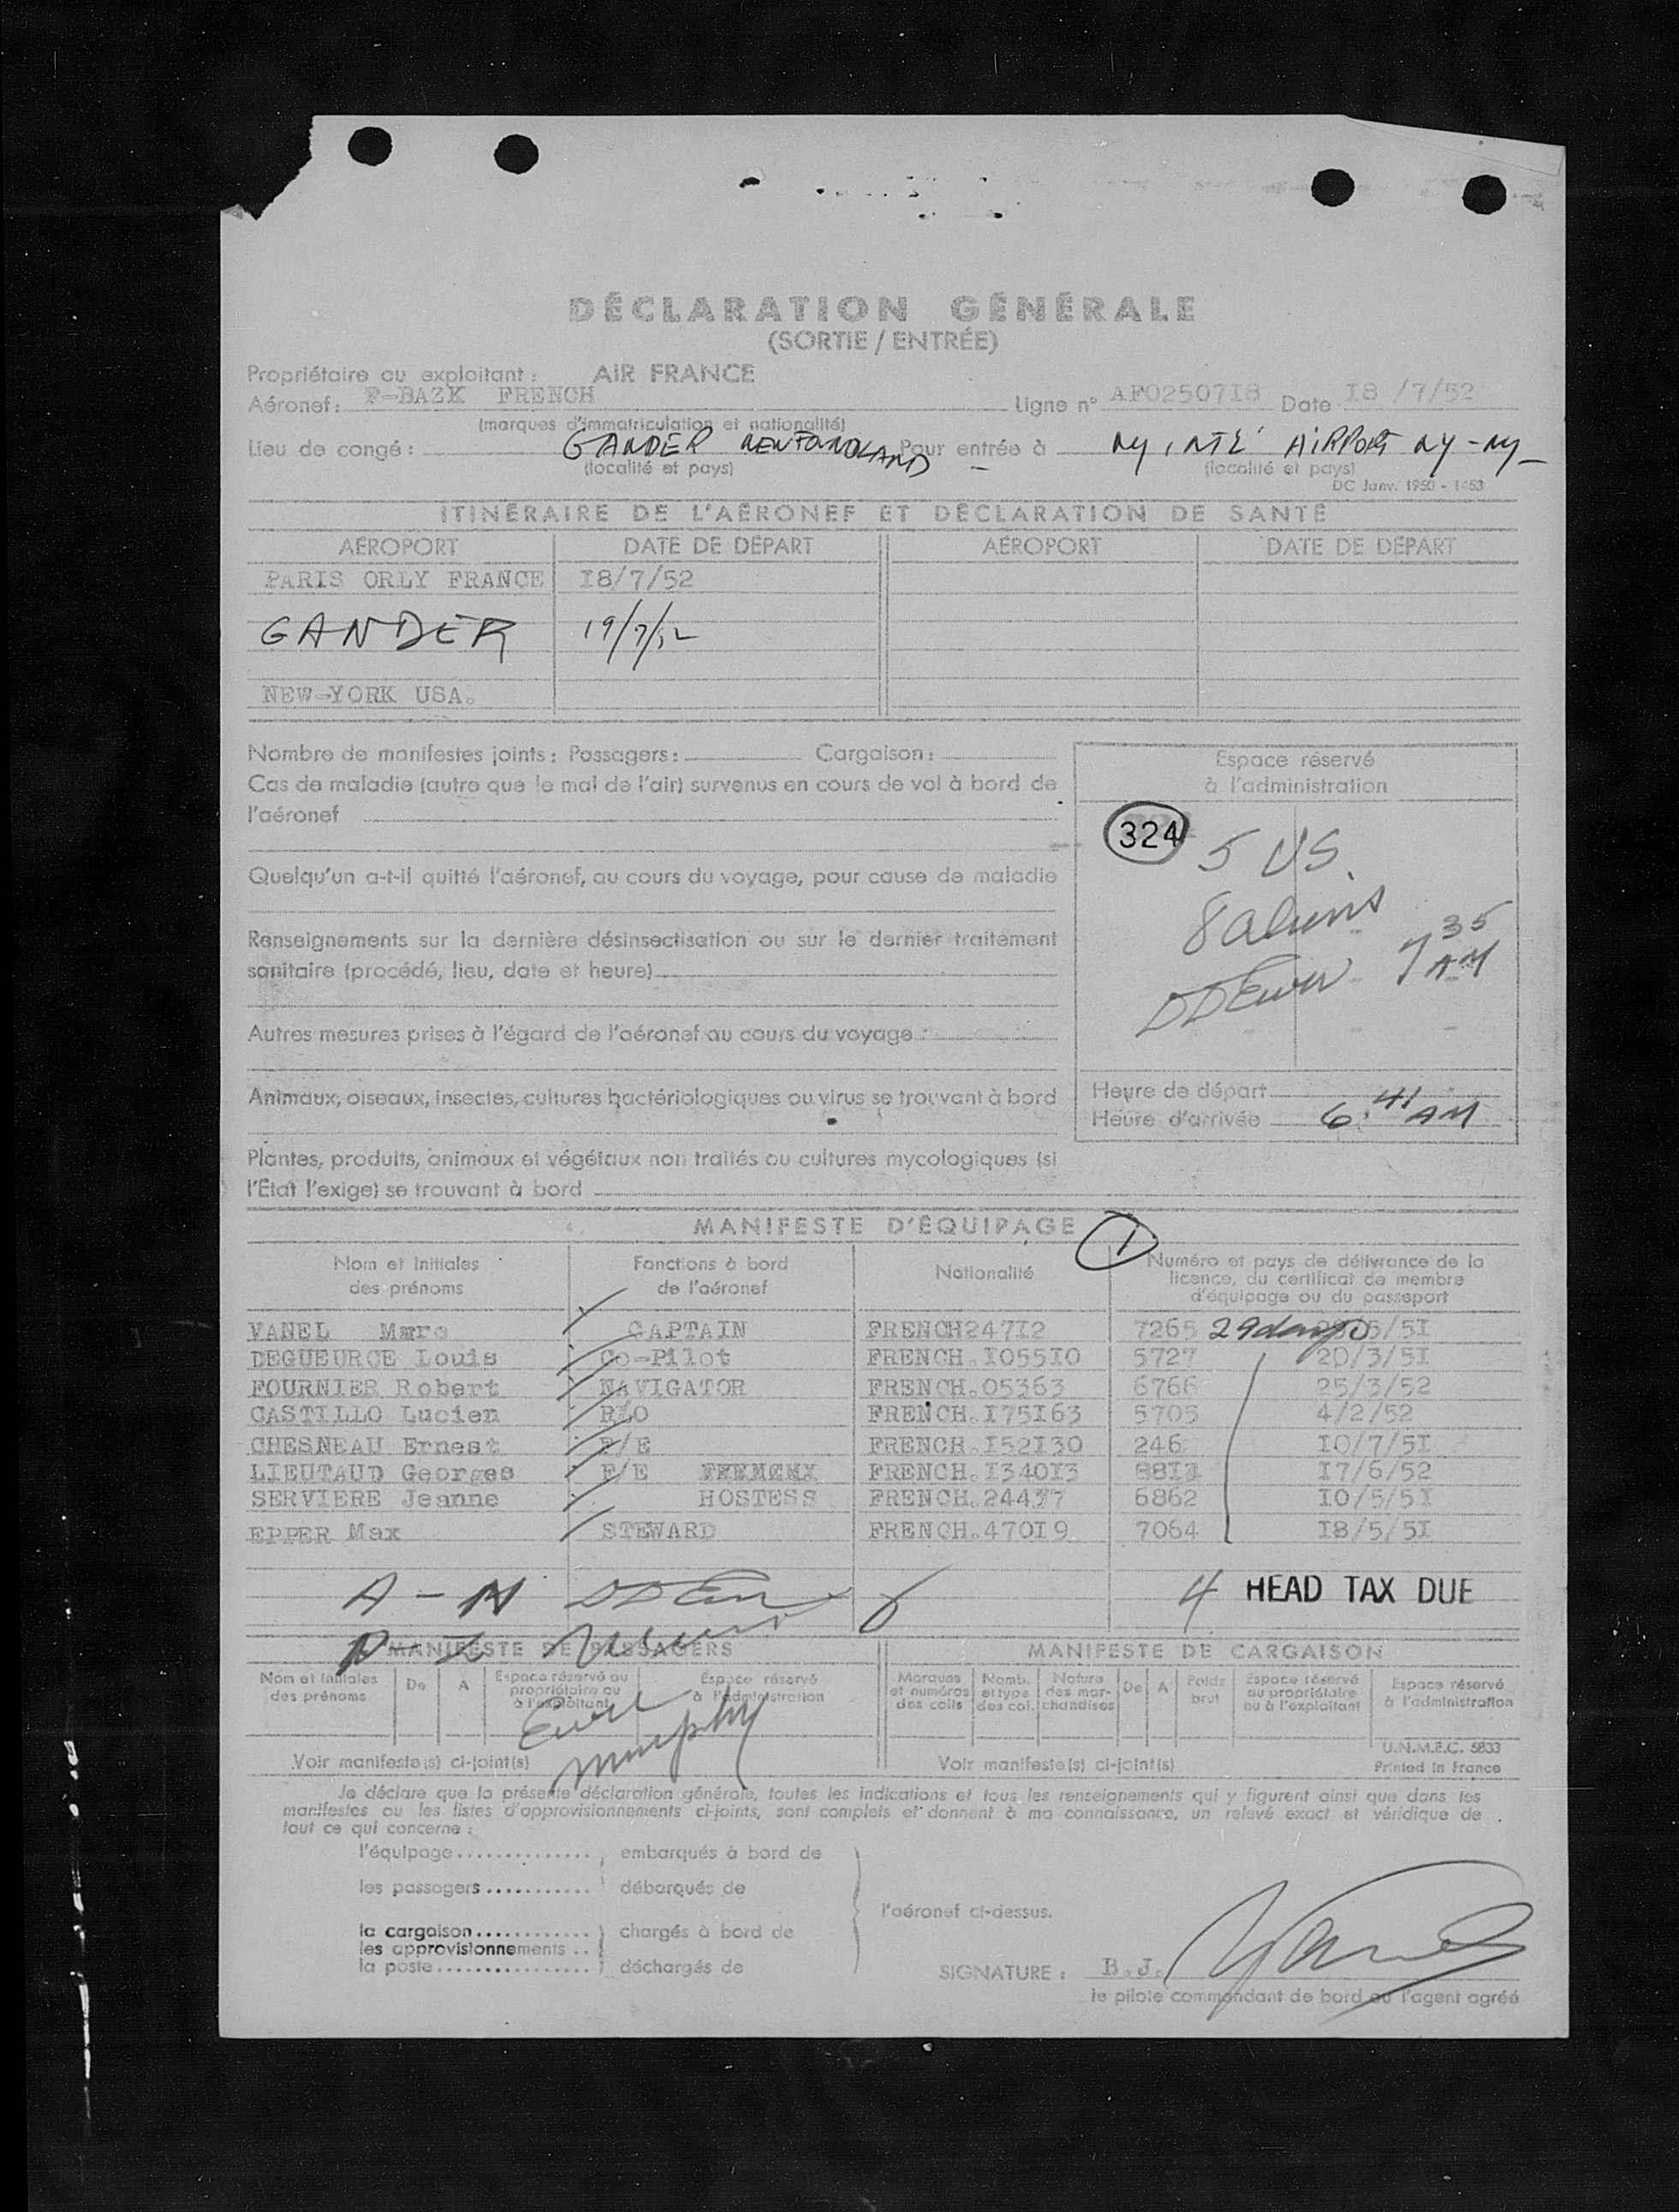 DÉCLARATION GÉNÉRALE
(SORTIE / ENTRÉE)
Propriétaire ou exploitant : AIR FRANCE
Aéronef : F-BAZK FRENCH Ligne n° AF02507I8 Date I8 /7/52
(marques d'immatriculation et nationalité)
Lieu de congé : GANDER NEWFOUNDLAND Pour entrée à NY, INTL' AIRPORT NY - NY
(localité et pays) (localité et pays)
DC Janv. 1950 - 1453
ITINÉRAIRE DE L'AÉRONEF ET DÉCLARATION DE SANTÉ
AÉROPORT DATE DE DÉPART AÉROPORT DATE DE DÉPART
PARIS ORLY FRANCE I8/7/52
GANDER 19/7/52
NEW-YORK USA.
Nombre de manifestes joints : Passagers : Cargaison :
Cas de maladie (autre que le mal de l'air) survenus en cours de vol à bord de
l'aéronef
Quelqu'un a-t-il quitté l'aéronef, au cours du voyage, pour cause de maladie
Renseignements sur la dernière désinsectisation ou sur le dernier traitement
sanitaire (procédé, lieu, date et heure)
Autres mesures prises à l'égard de l'aéronef au cours du voyage :
Animaux, oiseaux, insectes, cultures bactériologiques ou virus se trouvant à bord
Plantes, produits, animaux et végétaux non traités ou cultures mycologiques (si
l'État l'exige) se trouvant à bord
Espace réservé
à l'administration
324 5 US.
8 aliens
7 35 AM
Heure de départ
Heure d'arrivée 6:41 AM
MANIFESTE D'ÉQUIPAGE 1
Nom et Initiales des prénoms
Fonctions à bord de l'aéronef
Nationalité
Numéro et pays de délivrance de la licence, du certificat de membre d'équipage ou du passeport
VANEL Marc CAPTAIN FRENCH247I2 7265 29 days 5/5I
DEGUEURCE Louis Co-Pilot FRENCH.I055I0 5727 20/3/5I
FOURNIER Robert NAVIGATOR FRENCH.05363 6766 25/3/52
CASTILLO Lucien R/O FRENCH.I75I63 5705 4/2/52
CHESNEAU Ernest F/E FRENCH.I52I30 246 I0/7/5I
LIEUTAUD Georges F/E FRENCH.I340I3 I7/6/52
SERVIERE Jeanne HOSTESS FRENCH.24437 6862 I0/5/5I
EPPER Max STEWARD FRENCH.470I9 7064 I8/5/5I
A - N 4 HEAD TAX DUE
MANIFESTE DE PASSAGERS MANIFESTE DE CARGAISON
Nom et Initiales des prénoms
De
A
Espace réservé au propriétaire ou à l'exploitant
Espace réservé à l'administration
Marques et numéros des colis
Nomb. et type des col.
Nature des marchandises
De
A
Poids brut
Espace réservé au propriétaire ou à l'exploitant
Espace réservé à l'administration
Murphy
U.N.M.E.C. 5833
Voir manifeste(s) ci-joint(s) Voir manifeste(s) ci-joint(s) Printed in France
Je déclare que la présente déclaration générale, toutes les indications et tous les renseignements qui y figurent ainsi que dans les
manifestes ou les listes d'approvisionnements ci-joints, sont complets et donnent à ma connaissance, un relevé exact et véridique de
tout ce qui concerne :
l'équipage.............. embarqués à bord de
les passagers........... débarqués de
l'aéronef ci-dessus.
la cargaison............ chargés à bord de
les approvisionnements ..
la poste................ déchargés de
SIGNATURE : B.J.
le pilote commandant de bord ou l'agent agréé